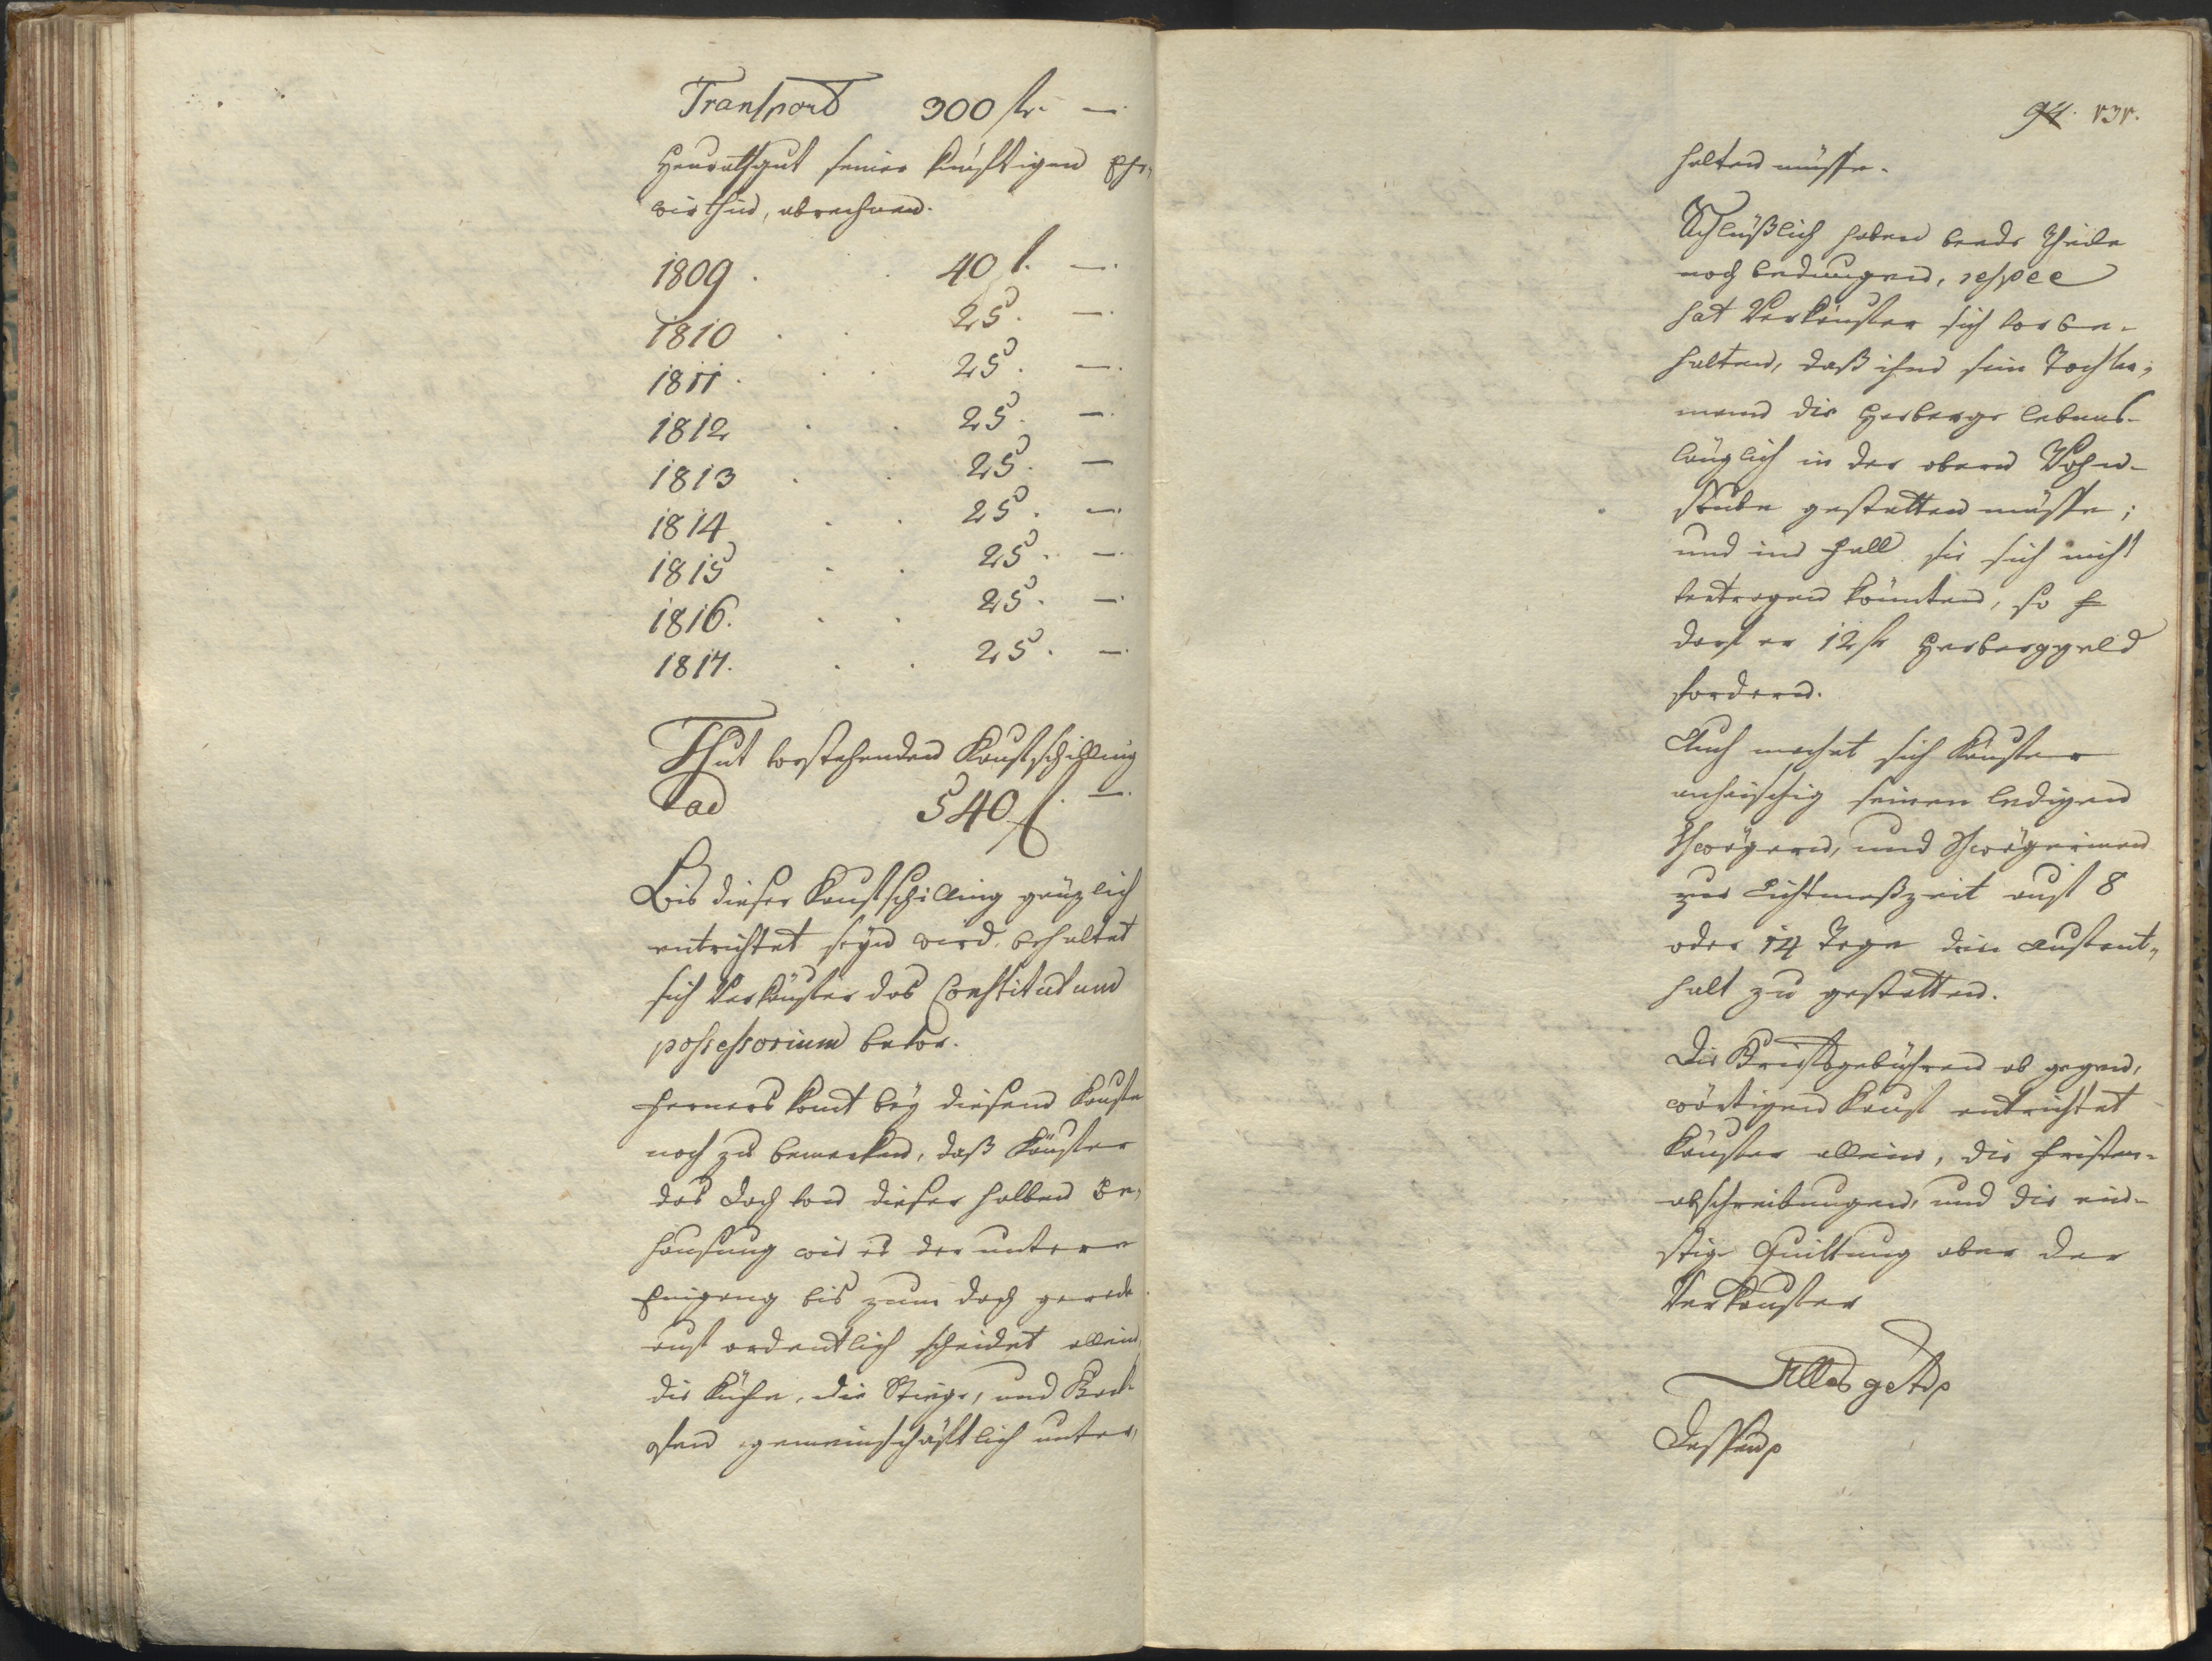 Transport 300 fr. —.
Heurathgut seiner künftigen Ehe,
wirthin, abrechnen.
1809 . . 40 f. —.
1810 . . 25. —.
1811. . . 25. —.
1812 . . 25. —.
1813 . . 25. —
1814 . . 25. —.
1815 . . 25. —.
1816. . . 25. —.
1817. . . 25. —.
Thut vorstehenden Kaufschilling
ad 540 f. —.
Bis dieser Kaufschilling gänzlich
entrichtet seyn wird, behaltet
sich Verkäufer das Constitutum
possessorium bevor.
Ferners komt bey diesem Kaufe
noch zu bemerken, daß Käufer
das Dach von dieser halben Be,
hausung wie es der untere
Eingang bis zum Dach gerade
auf ordentlich scheidet allein
die Kuche, die Stiege, und Back
ofen gemeinschäftlich unter,
94. 131.
halten müsse.
Schlüßlich haben beede Theile
noch bedungen, respee
hat Verkäufer sich vorbe-
halten, daß ihm sein Tochter,
mann die Herberge lebens-
länglich in der obern Wohn-
stube gestatten müsse;
und im Fall sie sich nicht
vertragen könnten, so
darf er 12 fr Herberggeld
fordern.
Auch machet sich Käufer
anheischig seinen ledigen
Schwägern, und Schwägerinen
zur Lichtmeßzeit auf 8
oder 14 Tage den Aufent,
halt zu gestatten.
Die Briefsgebühren ob gegen,
wärtigen Kauf entrichtet
Käufer allein, die Fristen-
abschreibungen, und die ein-
stige Quittung aber der
Verkäufer
Alles get
Dessen